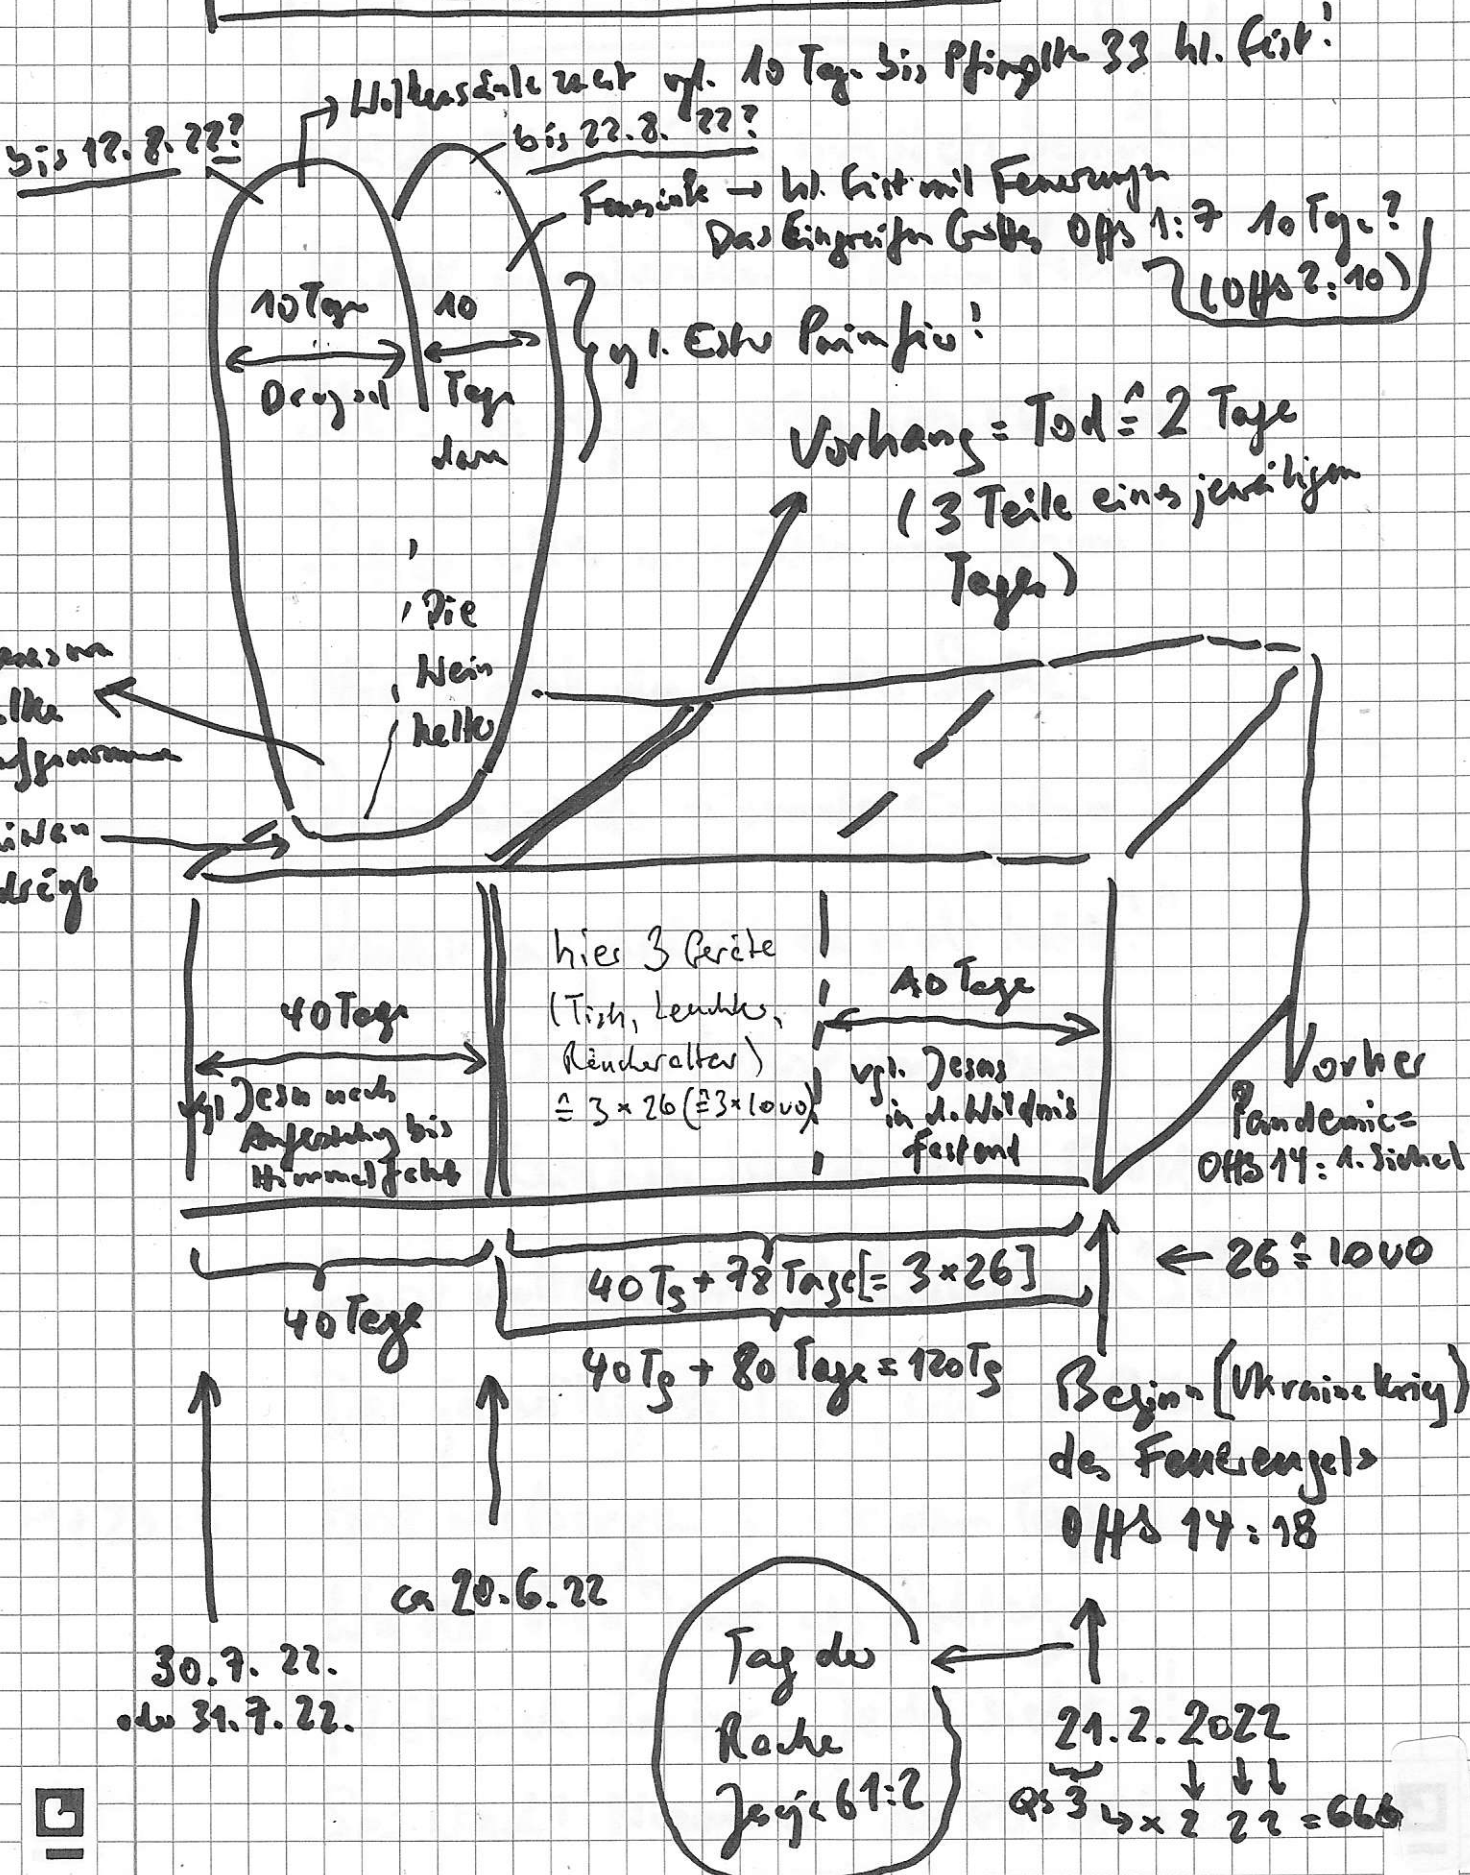 Wolkensäule zuerst vgl. 10 Tage bis Pfingsten 33 hl. Geist!
bis 12.8.22?
bis 22.8.22?
Feuersäule → hl. Geist mit Feuerzungen
Das Eingreifen Gottes Offb 1:7 10 Tage?
(Offb 2:10)
10 Tage
Drangsal
10
Tage
dann
vgl. Ester Purimfeier!
Vorhang = Tod ≙ 2 Tage
(3 Teile eines jeweiligen
Tages)
Die
Wein
kelter
40 Tage
vgl Jesu nach
Auferstehung bis
Himmelfahrt
hier 3 Geräte
(Tisch, Leuchter,
Räucheraltar)
≙ 3 × 26 (≙ 3×1000)
40 Tage
vgl. Jesus
in d. Wildnis
fastend
Vorher
Pandemie =
Offb 14: 1. Sichel
40 Tage
40 Tg + 78 Tage [= 3×26]
← 26 ≙ 1000
40 Tg + 80 Tage = 120 Tg
Beginn (Ukrainekrieg)
des Feuerengels
Offb 14:18
ca 20.6.22
30.7.22.
oder 31.7.22.
Tag der
Rache
Jesaja 61:2
21.2.2022
QS 3 ↳ × 2 2 2 = 666